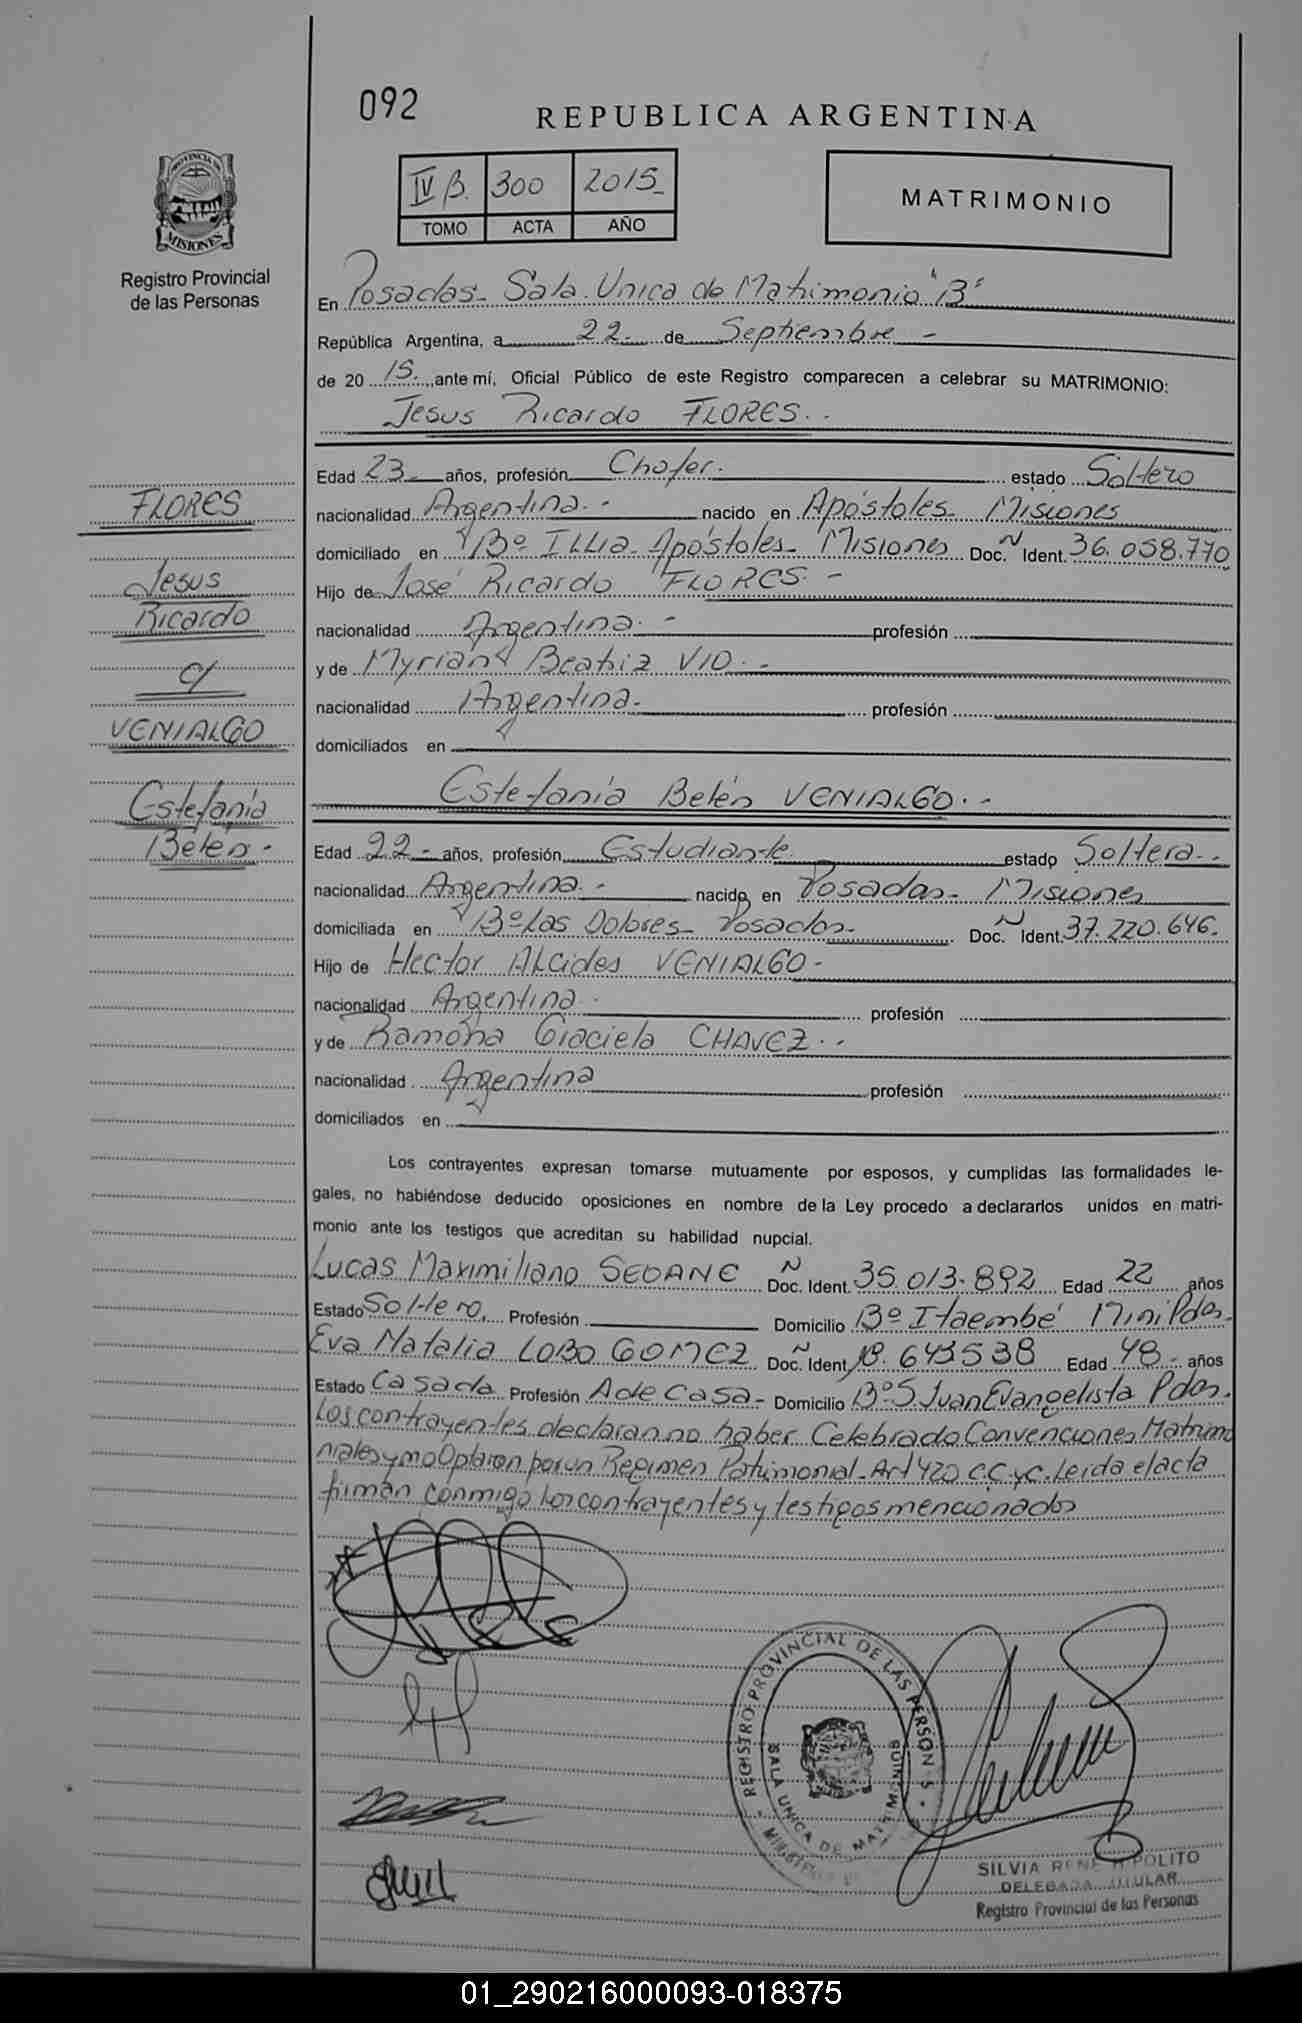 092
REPUBLICA ARGENTINA
IV B. 300 2015
TOMO ACTA AÑO
MATRIMONIO
PROVINCIA DE MISIONES
Registro Provincial
de las Personas
En Posadas - Sala Unica de Matrimonio "B"
República Argentina, a 22 de Septiembre -
de 20 15 ante mí, Oficial Público de este Registro comparecen a celebrar su MATRIMONIO:
Jesus Ricardo FLORES..
Edad 23 - años, profesión Chofer. estado Soltero
nacionalidad Argentina. - nacido en Apóstoles - Misiones
domiciliado en Bº ILLIA - Apóstoles - Misiones Doc. Ñ Ident. 36.058.770
Hijo de José Ricardo FLORES. -
nacionalidad Argentina. - profesión
y de Myrian Beatriz VIO. -
nacionalidad Argentina. profesión
domiciliados en
Estefanía Belén VENIALGO. -
Edad 22 - años, profesión Estudiante estado Soltera..
nacionalidad Argentina. - nacido en Posadas - Misiones
domiciliada en Bº Las Dolores - Posadas - Doc. Ñ Ident. 37.220.646.
Hijo de Hector Alcides VENIALGO -
nacionalidad Argentina. profesión
y de Ramona Graciela CHAVEZ..
nacionalidad Argentina profesión
domiciliados en
FLORES
Jesus
Ricardo
c/
VENIALGO
Estefanía
Belén -
Los contrayentes expresan tomarse mutuamente por esposos, y cumplidas las formalidades le-
gales, no habiéndose deducido oposiciones en nombre de la Ley procedo a declararlos unidos en matri-
monio ante los testigos que acreditan su habilidad nupcial.
Lucas Maximiliano SEOANE Doc. Ñ Ident. 35.013.892 Edad 22 años
Estado Soltero, Profesión Domicilio Bº Itaembé Mini Pdas.
Eva Natalia LOBO GOMEZ Doc. Ñ Ident 18.643538 Edad 48 - años
Estado Casada Profesión A de Casa - Domicilio Bº S Juan Evangelista Pdas.
Los contrayentes declaran no haber Celebrado Convenciones Matrimo
niales y no Optaron por un Regimen Patrimonial - Art 420 C.C.yC. Leida el acta
firman conmigo los contrayentes y testigos mencionados
REGISTRO PROVINCIAL DE LAS PERSON S
SALA UNICA DE MATRIMONIOS
SILVIA RENE HIPOLITO
DELEGADA TITULAR
Registro Provincial de las Personas
01_290216000093-018375